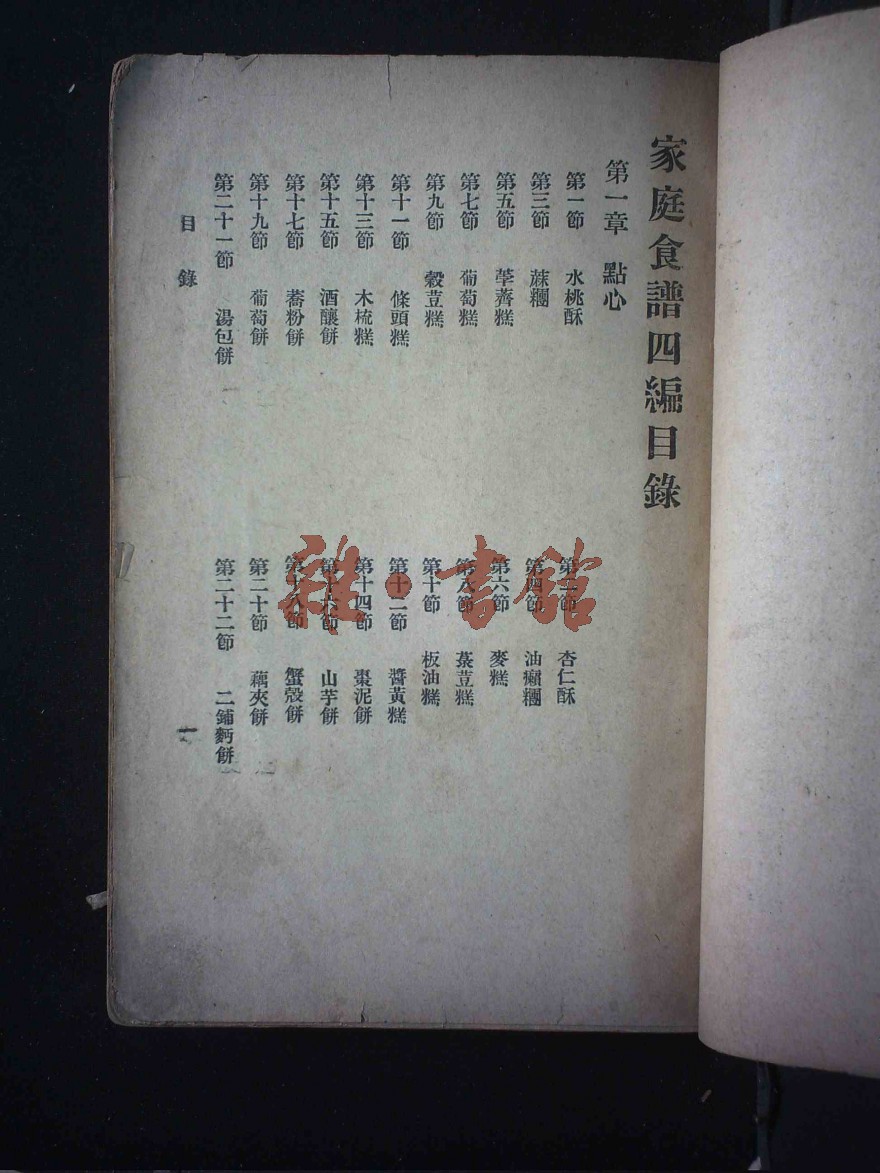 家庭食譜四編目錄
第一章 點心
第一節 水桃酥
第二節 杏仁酥
第三節 蔴糰
第四節 油㿔糰
第五節 荸薺糕
第六節 麥糕
第七節 葡萄糕
第八節 菉荳糕
第九節 穀荳糕
第十節 板油糕
第十一節 條頭糕
第十二節 醬黃糕
第十三節 木梳糕
第十四節 棗泥餅
第十五節 酒釀餅
第十六節 山芋餅
第十七節 蕎粉餅
第十八節 蟹殼餅
第十九節 葡萄餅
第二十節 藕夾餅
第二十一節 湯包餅
第二十二節 二鋪麪餅
目錄
一
雜·書館